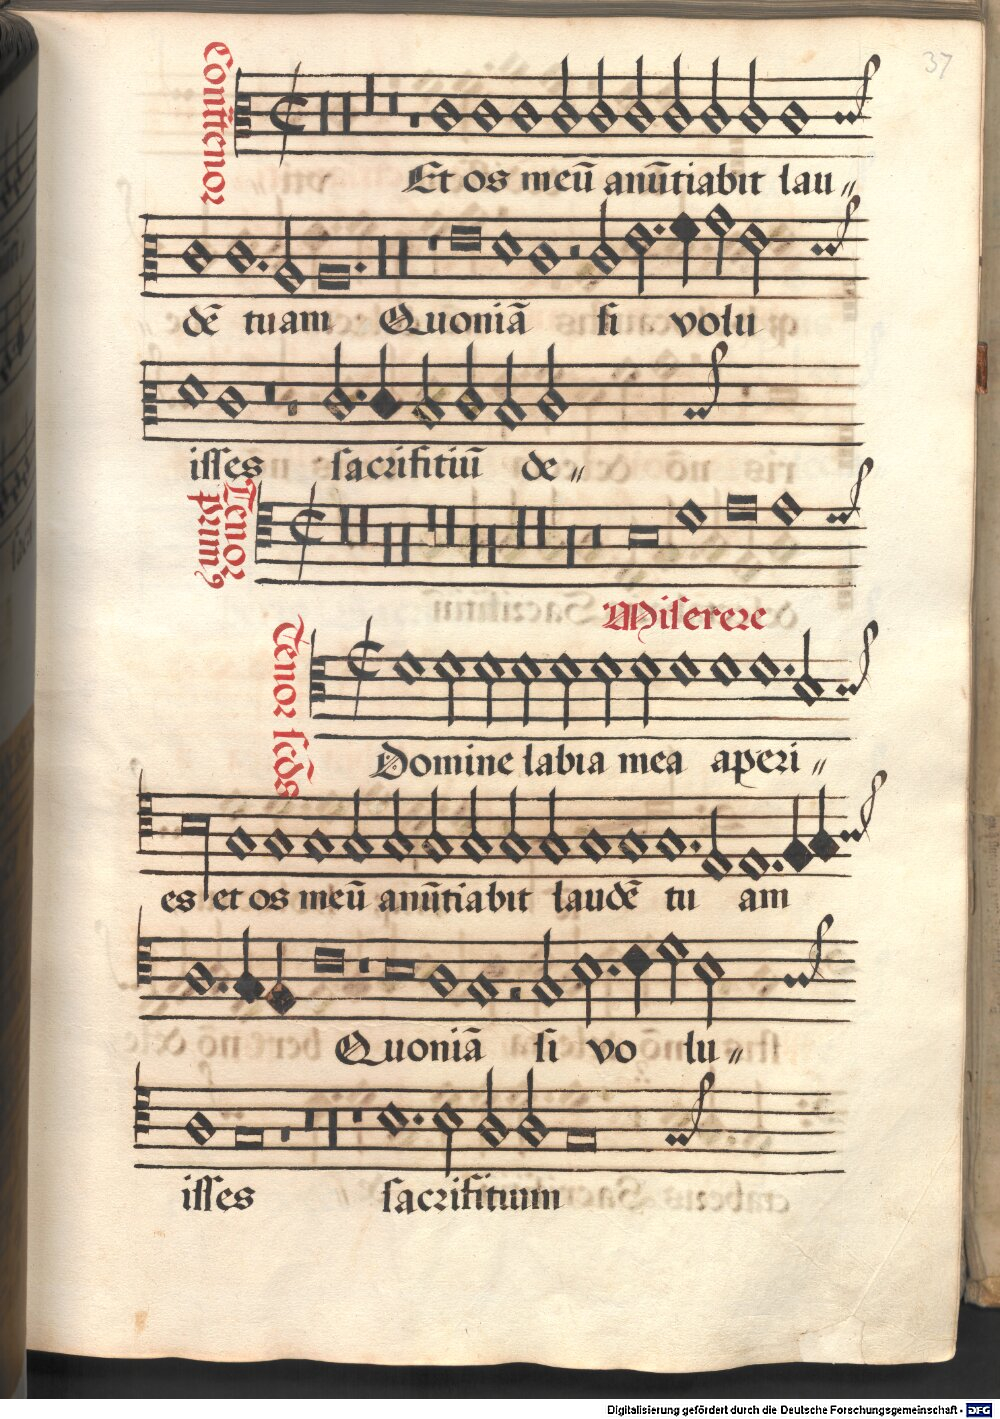 37
Contratenor
Et os meū anūtiabit lau〃
dē tuam Quoniā si volu
isses sacrifitiū de〃
Tenor
primꝰ
Miserere
Tenor scd̄s
Domine labia mea aperi〃
es et os meū anūtiabit laudē tu am
Quoniā si vo lu〃
isses sacrifitium
Digitalisierung gefördert durch die Deutsche Forschungsgemeinschaft - DFG